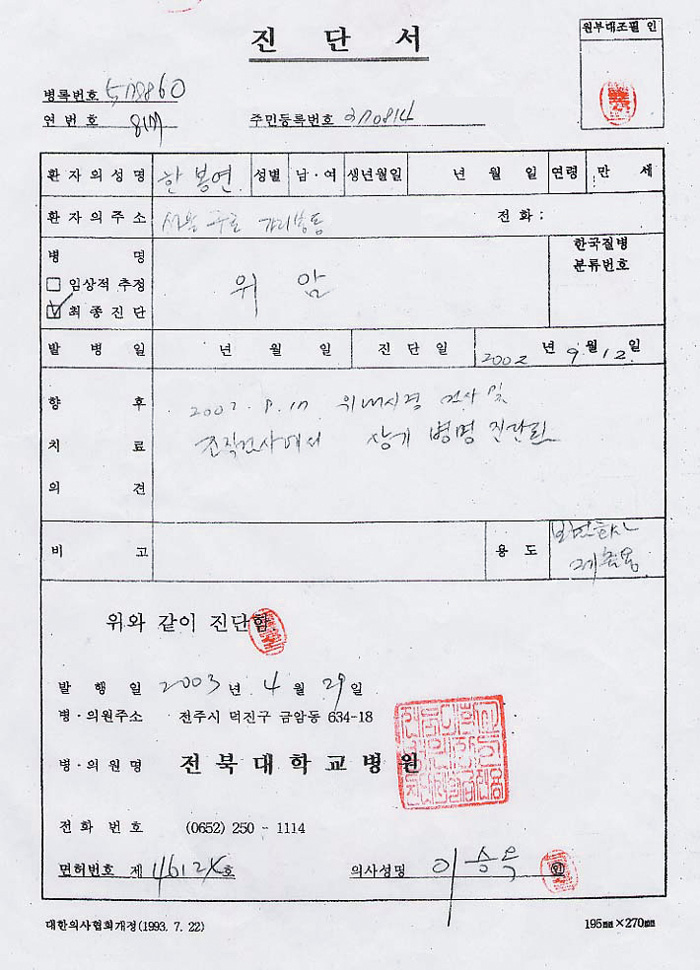 진 단 서
원부대조필 인
병록번호
연 번 호 817
주민등록번호 370814
환 자 의 성 명 한 봉연 성별 남 · 여 생년월일 년 월 일 연령 만 세
환 자 의 주 소 전 화 :
병 명 한국질병
분류번호
임상적 추정
최 종 진 단
위 암
발 병 일 년 월 일 진 단 일 2002 년 9 월 12 일
향 후 위내시경 검사 및
치 료 조직검사에서 상기 병명 진단됨
의 견
비 고 용 도 제출용
위와 같이 진단함
발 행 일 2003 년 4 월 29 일
병 · 의원주소 전주시 덕진구 금암동 634-18
병 · 의 원 명 전 북 대 학 교 병 원
전 화 번 호 (0652) 250 - 1114
면허번호 제 호 의사성명 이 승옥 인
대한의사협회개정(1993. 7. 22) 195㎜×270㎜